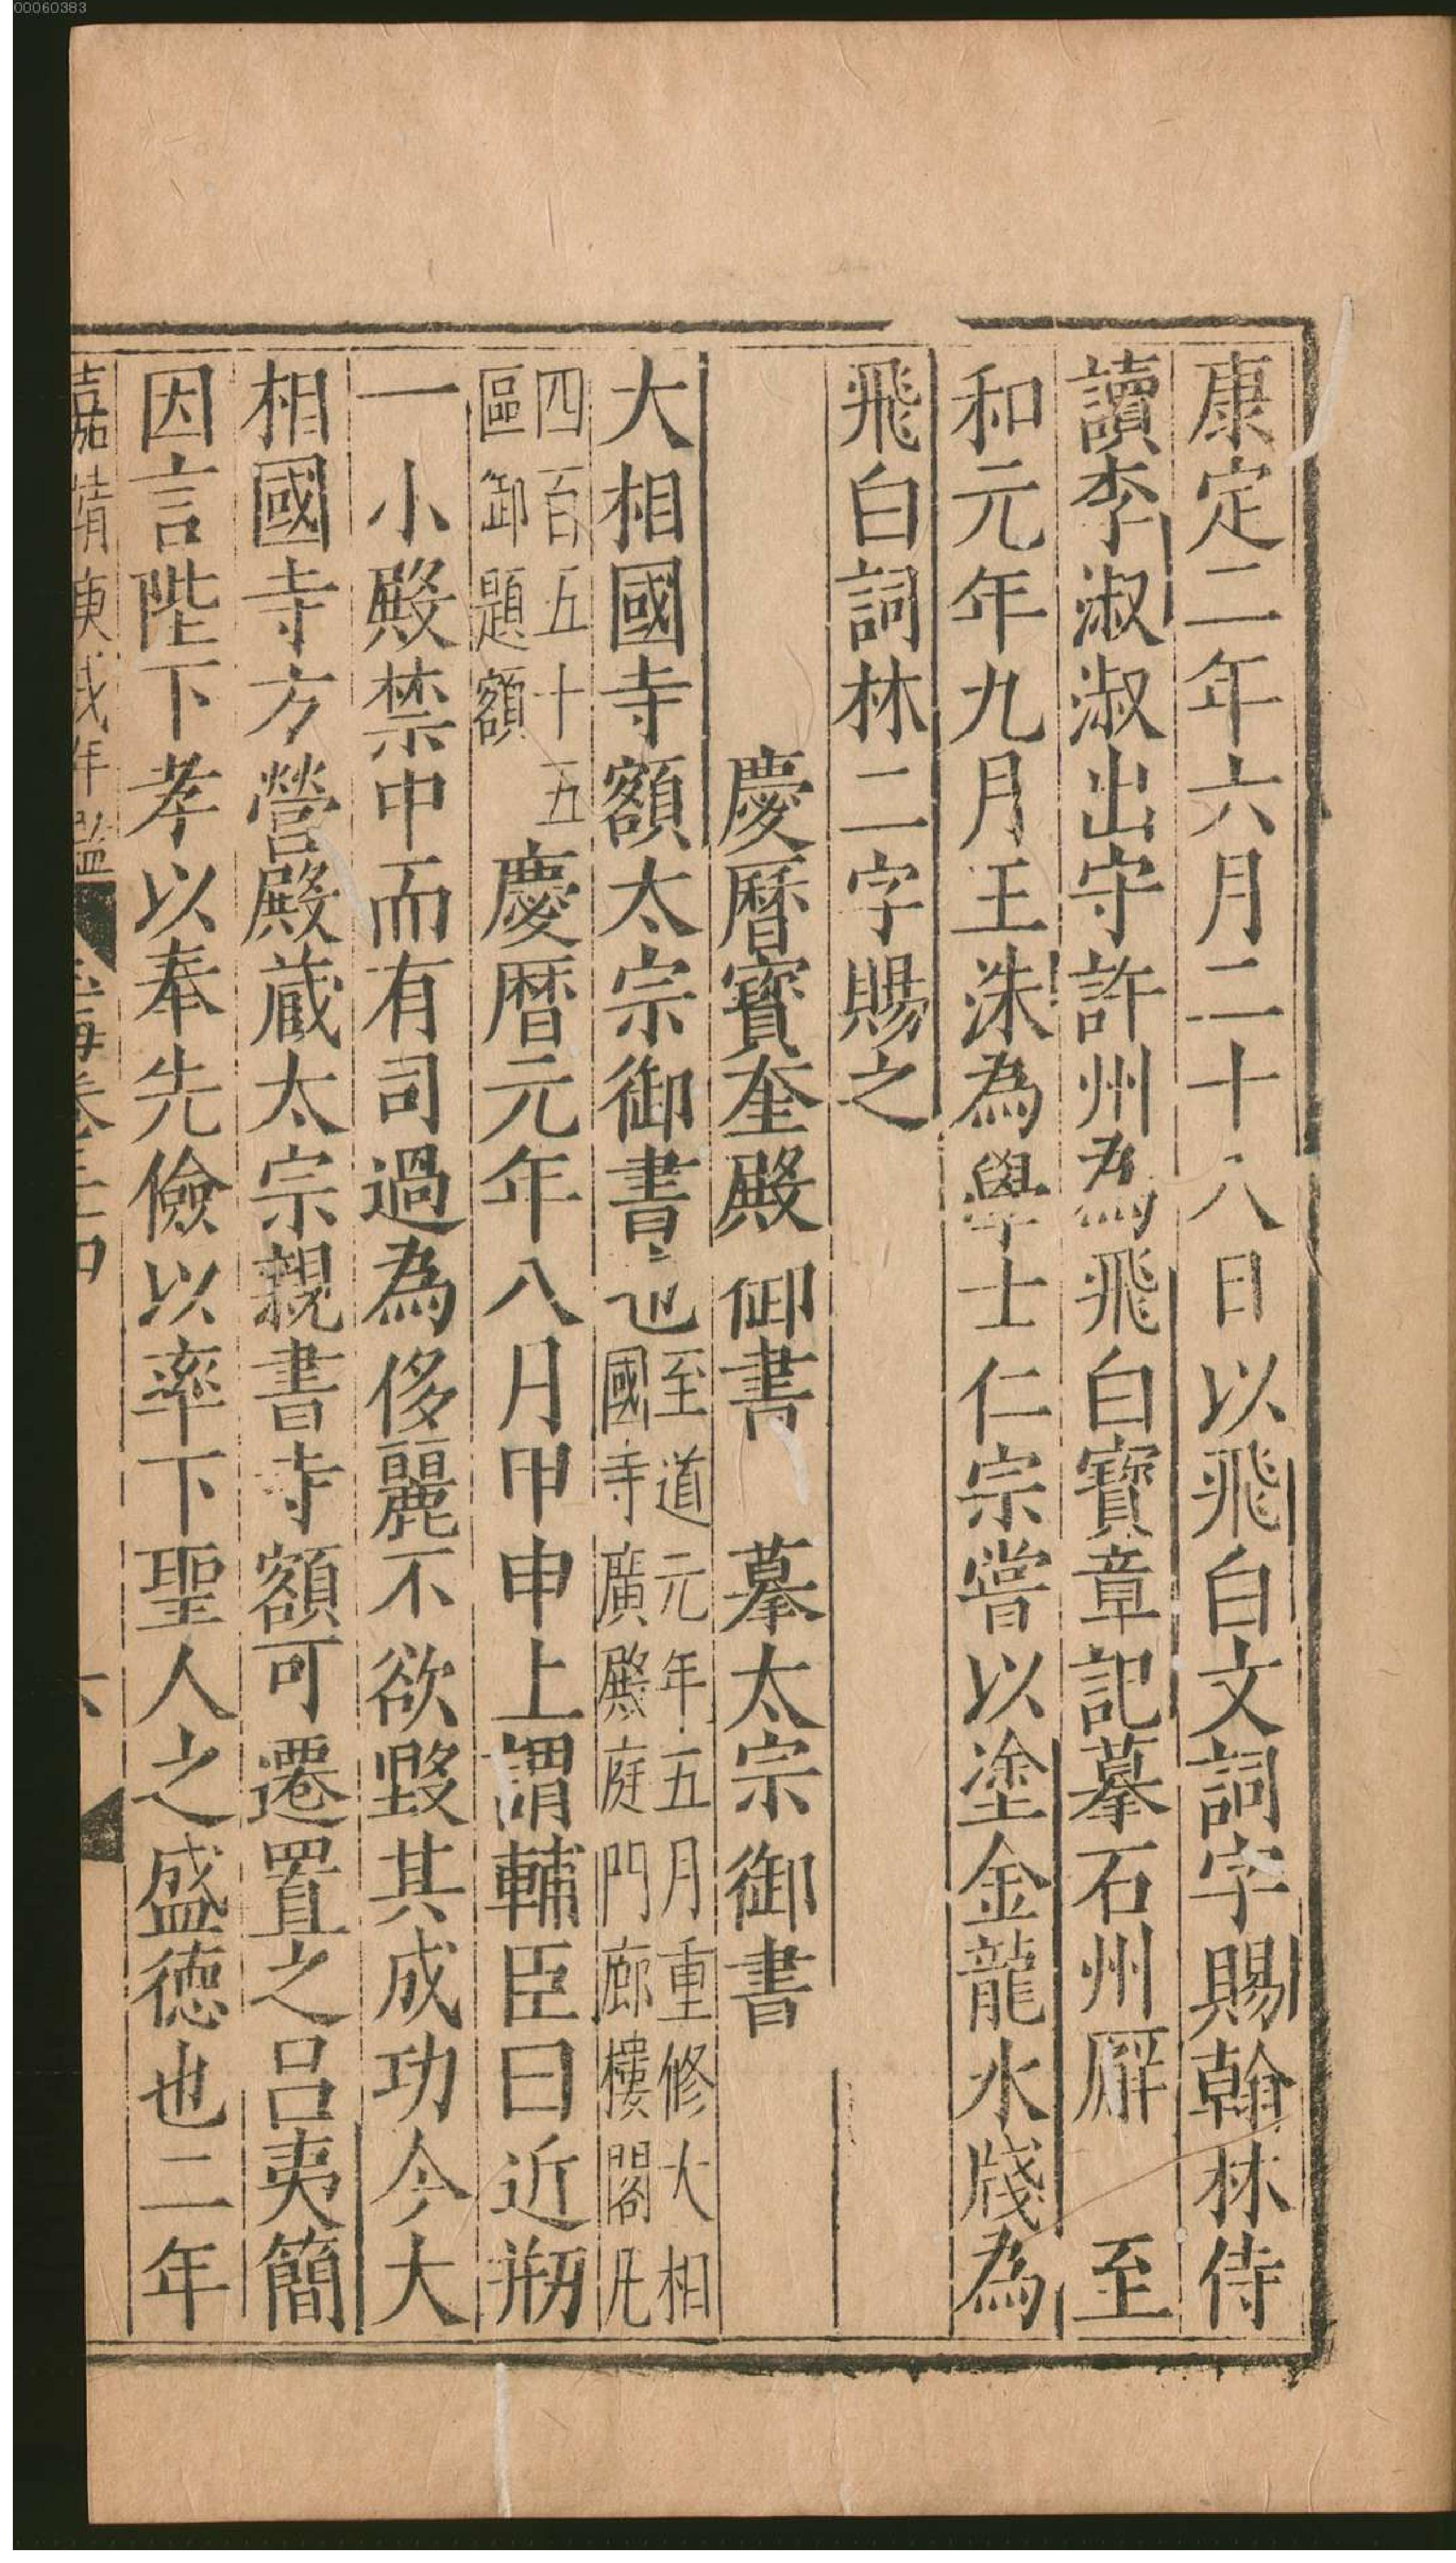 00060383
康定二年六月二十八日以飛白文詞字賜翰林侍
讀李淑淑出守許州為飛白寶章記摹石州廨　至
和元年九月王洙為學士仁宗嘗以塗金龍水牋為
飛白詞林二字賜之
慶曆寶奎殿　御書　摹太宗御書
大相國寺額太宗御書也至道元年五月重修大相
國寺廣殿庭門廊樓閣凡
四百五十五
區御題額
慶曆元年八月甲申上謂輔臣曰近剏
一小殿禁中而有司過為侈麗不欲毀其成功今大
相國寺方營殿藏太宗親書寺額可遷置之呂夷簡
因言陛下孝以奉先儉以率下聖人之盛德也二年
嘉靖庚戌年監
六